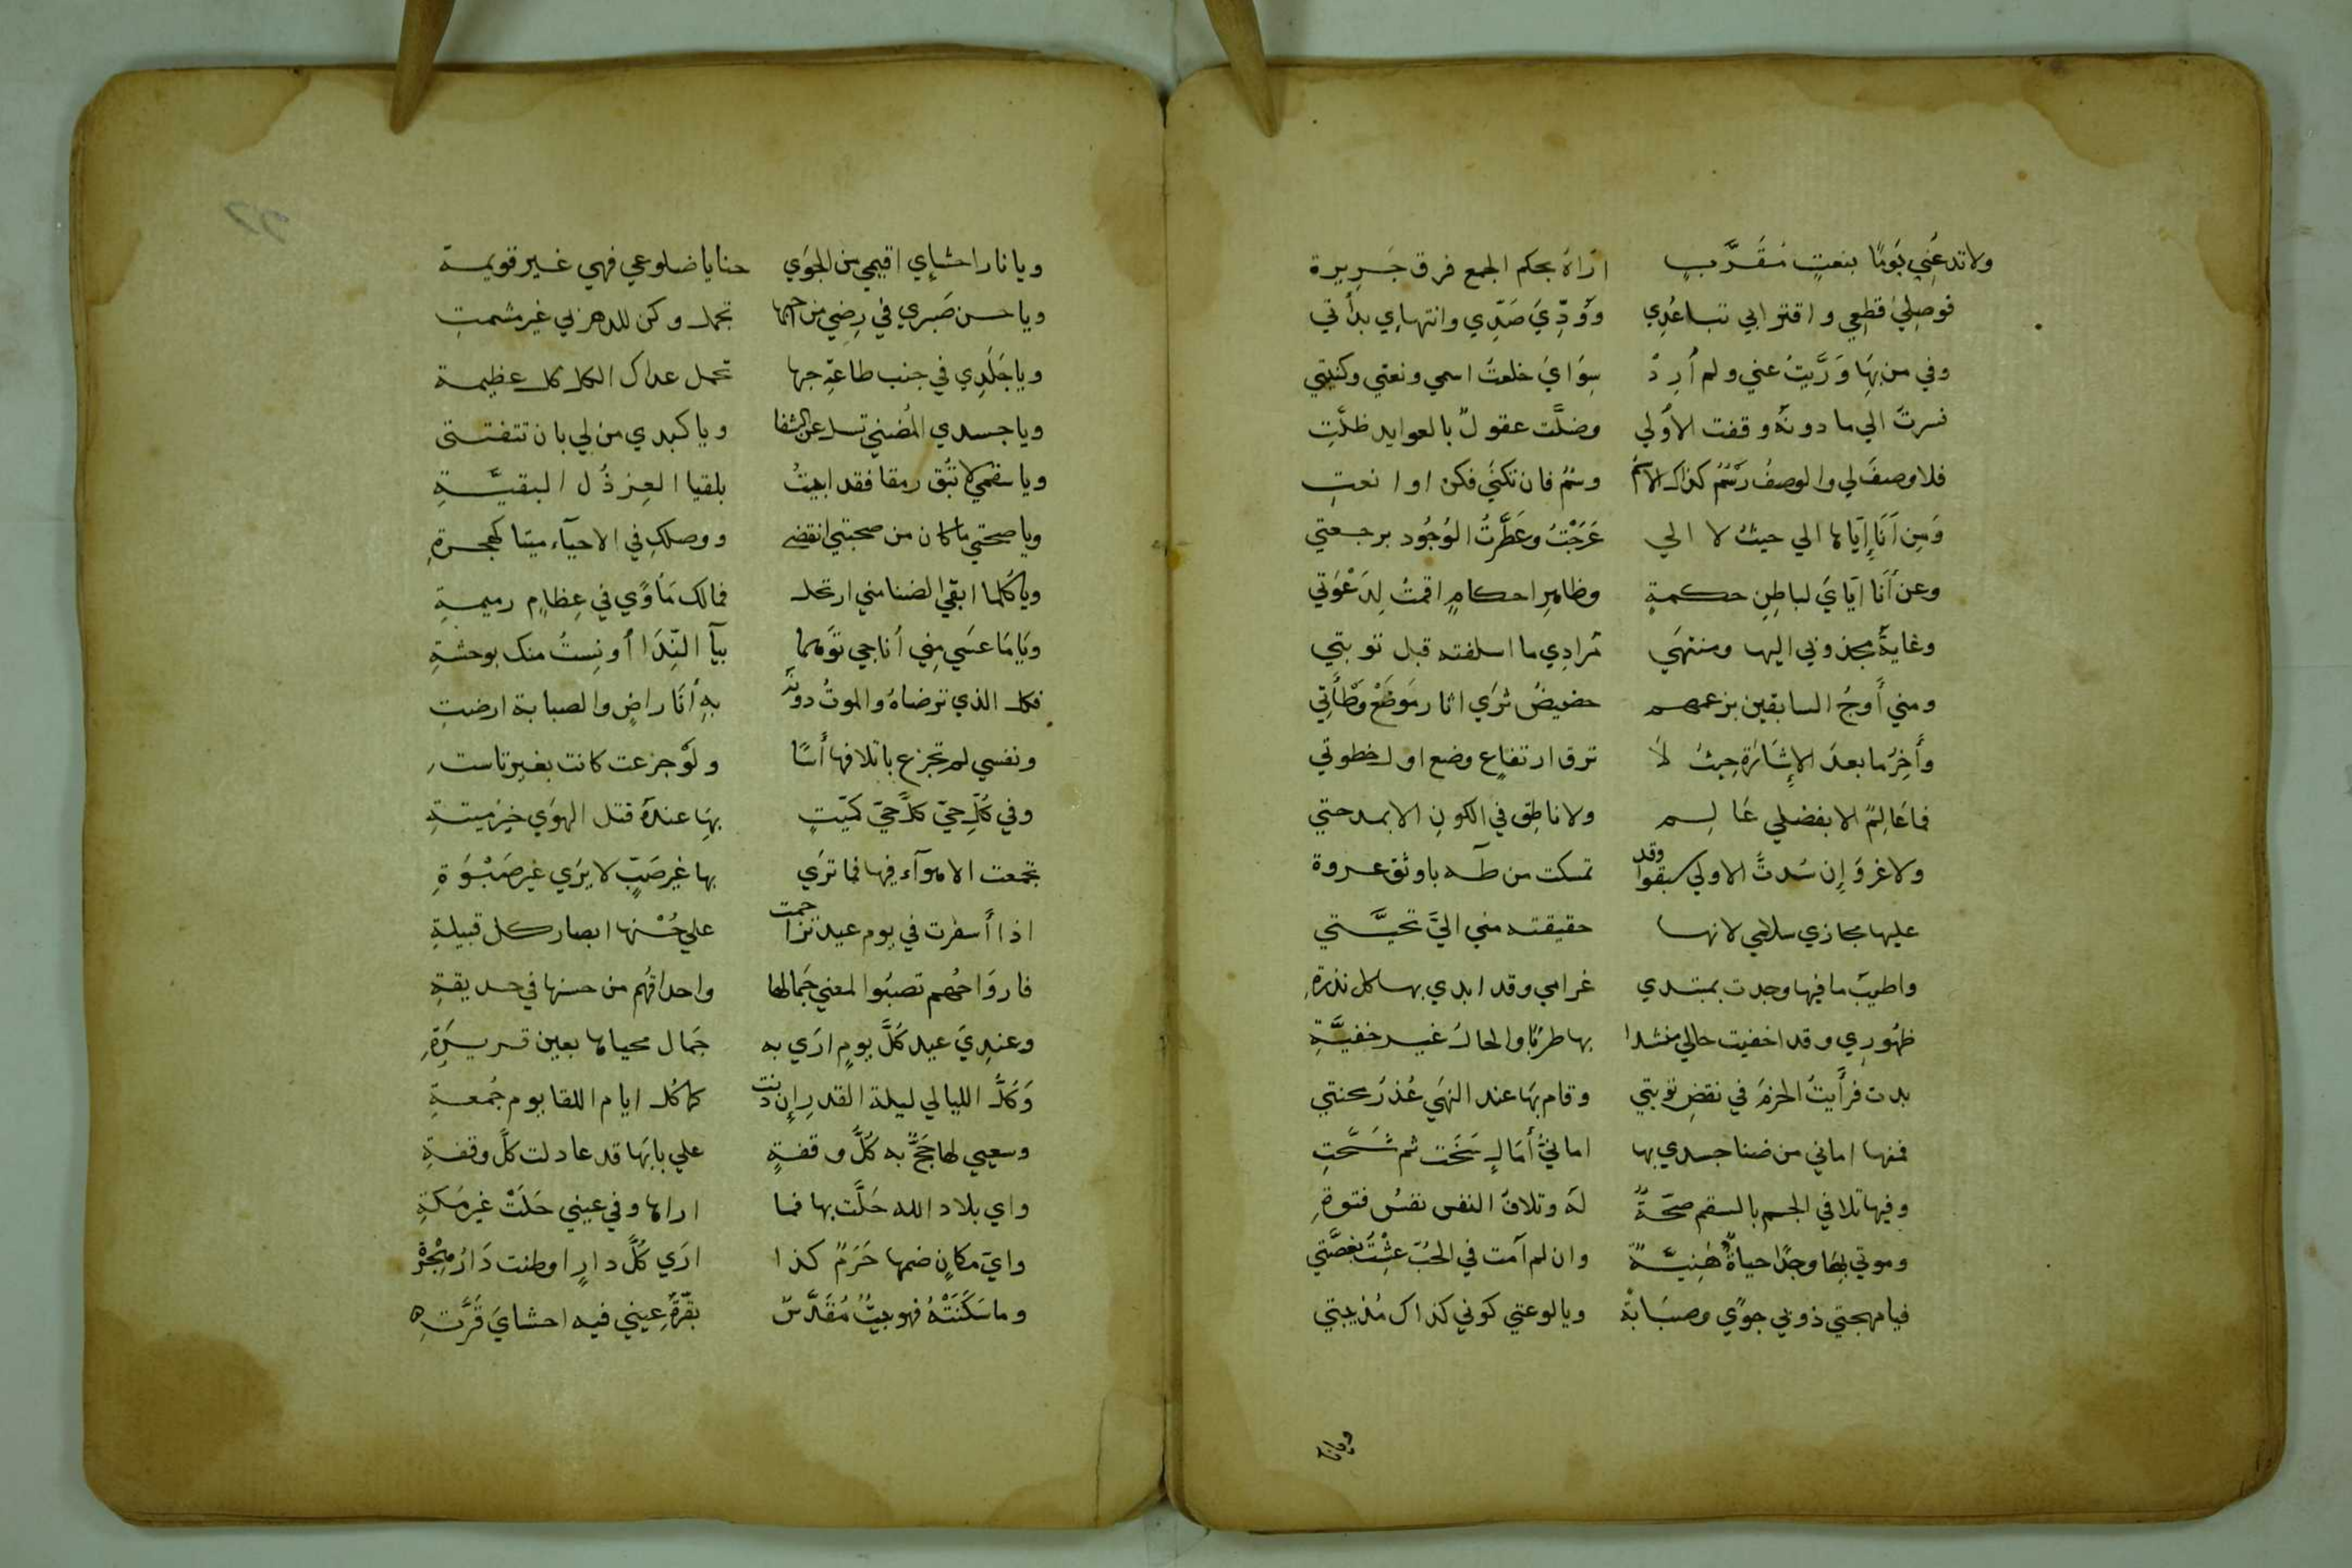 ولا تدعني يومًا بنعتٍ مقرَّبٍ اراه بحكم الجمع فرق جريرة
فوصلي قطعي واقترابي تباعدي وودّي صدّي وانتهاي بدأتي
وفي من بها ورّيت عني ولم أرد سواي خلعت اسمي ونعتي وكنيتي
فسرت الي ما دونه وقفت الأولي وضلّت عقولٌ بالعوايد ظلّت
فلا وصف لي والوصف رسم كذاك الاسم وسم فان تكني فكن او انعت
ومن أنا إياها الي حيث لا الي عرجت وعطّرت الوجود برجعتي
وعن أنا اياي لباطن حكمةٍ وظاهر احكامٍ اقمت لدعوتي
وغاية مجذوبي اليها ومنتهي مرادي ما اسلفته قبل توبتي
ومني أوج السابقين بزعمهم حضيض ثري اثار موضع وطأتي
وأخر ما بعد الإشارة حيث لا ترق ارتفاع وضع اول خطوتي
فما عالم الا بفضلي عالم ولا ناطق في الكون الا بمدحتي
ولا غرو إن سدت الاولي سبقوا وقد تمسكت من طه باوثق عروة
عليها مجازي سلامي لانها حقيقته مني اليّ تحيّتي
واطيب ما فيها وجدت بمبتدي غرامي وقد ابدي بها كل نذرة
ظهوري وقد اخفيت حالي منشدا بها طربًا والحال غير خفيّة
بدت فرأيت الحزم في نقض توبتي وقام بها عند النهي عذر محنتي
فمنها اماني من ضنا جسدي بها اماني أمالٍ سخت ثم شحّت
وفيها تلافي الجسم بالسقم صحّة له وتلاف النفس نفس فتوة
وموتي بها وجدًا حياةٌ هنيّة وان لم امت في الحب عشت بغصّتي
فيا مهجتي ذوبي جوًي وصبابة ويا لوعتي كوني كذاك مذيبتي
ويا نار
ويا نار احشاي اقيمي من الجوي حنايا ضلوعي فهي غير قويمة
ويا حسن صبري في رضي من احبها تجمل وكن للدهر بي غير مشمت
ويا جلدي في جنب طاعة حبها تحمل عداك الكل كل عظيمة
ويا جسدي المضني تسل عن الشفا ويا كبدي من لي بان تتفتتي
ويا سقمي لا تبق رمقا فقد ابيت بلقيا العز ذل البقيّة
ويا صحتي ما كان من صحبتي انقضي ووصلك في الاحياء ميتا كهجرة
ويا كلما ابقي الضنا مني ارتحل فما لك مأوًي في عظامٍ رميمة
ويا ما عسي مني أناجي توهما بيآ الندا أونست منك بوحشة
فكل الذي ترضاه والموت دونه به أنا راضٍ والصبابة ارضت
ونفسي لم تجزع باتلافها أسًا ولو جزعت كانت بغير تاست
وفي كلّ حيّ كلّ حيّ كميّتٍ بها عنده قتل الهوي خير ميتة
تجمعت الاهوآء فيها فما تري بها غير صبٍّ لا يري غير صبوة
اذا أسفرت في يوم عيد تزاحمت علي حسنها ابصار كل قبيلة
فارواحهم تصبوا لمعني جمالها واحداقهم من حسنها في حديقة
وعندي عيد كلّ يومٍ اري به جمال محياها بعين قريرة
وكلّ الليالي ليلة القدر إن دنت كما كل ايام اللقا يوم جمعة
وسعيي لها حجّ به كلّ وقفةٍ علي بابها قد عادلت كلّ وقفة
واي بلاد الله حلّت بها فما اراها وفي عيني حلت غير مكة
واي مكانٍ ضمها حرم كذا اري كلّ دارٍ اوطنت دار هجرة
وما سكنته فهو بيت مقدّس بقرّة عيني فيه احشاي قرّت